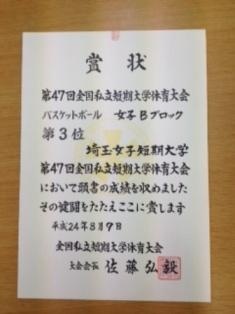 賞状
第47回全国私立短期大学体育大会
バスケットボール 女子Bブロック
第3位
埼玉女子短期大学
第47回全国私立短期大学体育大会
において頭書の成績を収めました
その健闘をたたえここに賞します
平成24年8月9日
全国私立短期大学体育大会
大会会長 佐藤弘毅